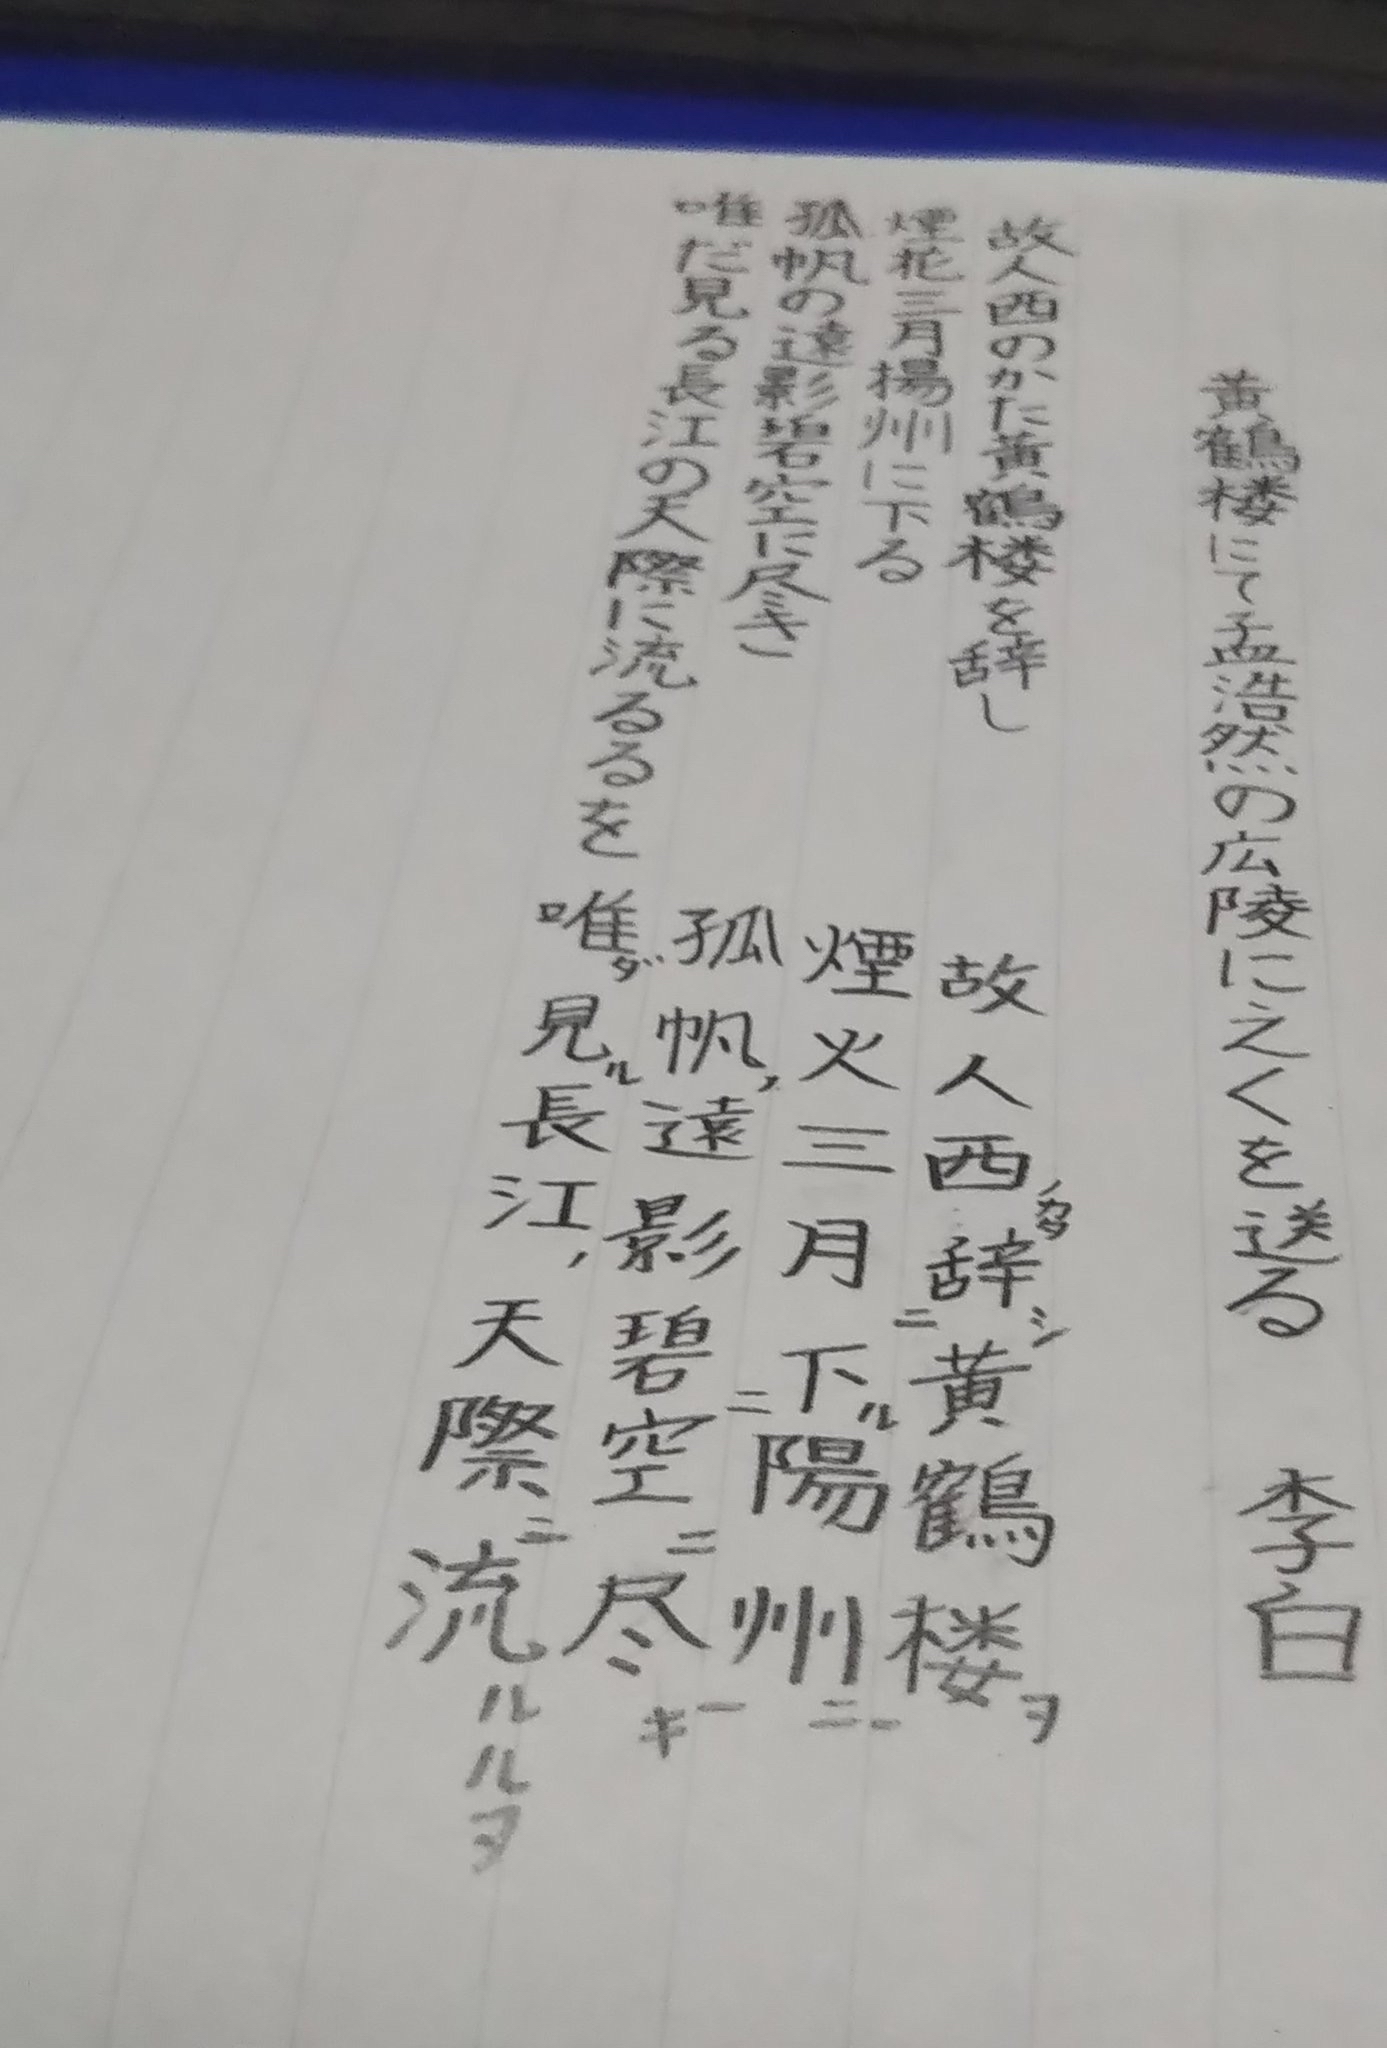 黄鶴楼にて孟浩然の広陵にえくを送る 李白
故人西のかた黄鶴楼を辞し
煙花三月揚州に下る
孤帆の遠影碧空に尽き
唯だ見る長江の天際に流るるを
故人西ノカタ辞シ二黄鶴楼ヲ一
煙火三月下ル二陽州ニ一
孤帆ノ遠影碧空ニ尽キ
唯ダ見ル長江ノ天際ニ流ルルヲ